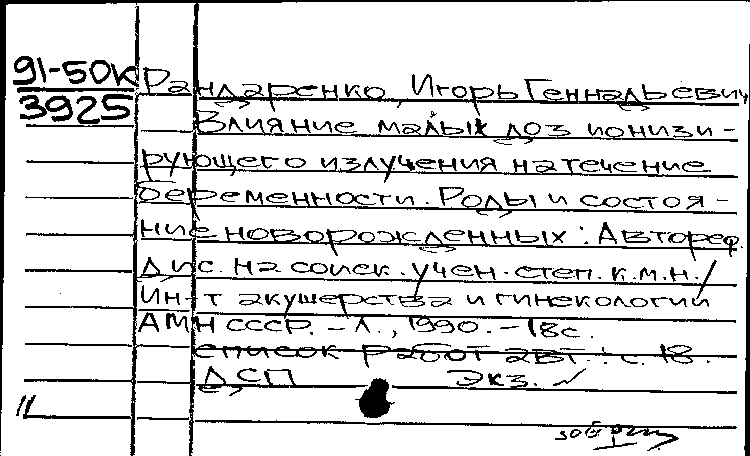 91-50К Рандаренко, Игорь Геннадьевич
3925 Влияние малых доз ионизи-
рующего излучения на течение
беременности. Роды и состоя-
ние новорожденных: Автореф.
дис. на соиск. учен. степ. к.м.н./
Ин-т акушерства и гинекологии
АМН СССР. - Л., 1990. - 18с.
список работ авт.: с. 18.
ДСП Экз. ✓
11